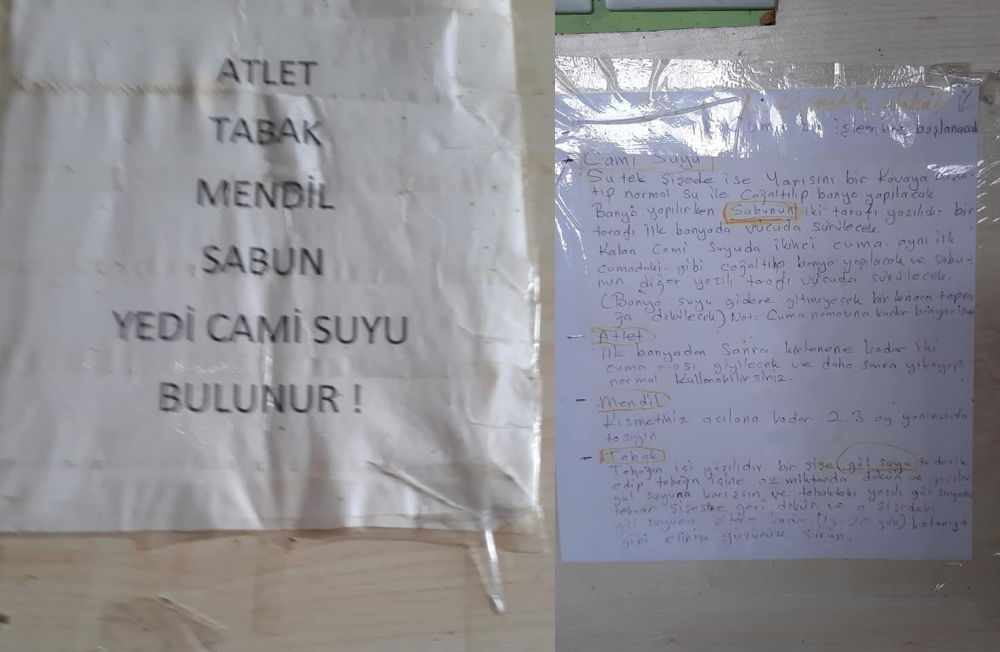 ATLET
TABAK
MENDİL
SABUN
YEDİ CAMİ SUYU
BULUNUR !
işlemlere başlanacak
Cami Suyu
Su tek şişede ise Yarısını bir Kovaya
tıp normal su ile Çoğaltılıp banyo yapılacak
Banyo yapılırken Sabunun iki tarafı yazılıdır bir
tarafı ilk banyoda vücuda sürülecek
Kalan Cami suyuda ikinci cuma aynı ilk
cumadaki gibi çoğaltılıp banyo yapılacak ve sabu-
nun diğer yazılı tarafı vücuda sürülecek.
(Banyo suyu gidere gitmeyecek bir kenara topra
ğa dökülecek) Not: Cuma namazına kadar
Atlet
ilk banyodan Sonra kirlenene kadar iki
cuma arası giyilecek ve daha sonra yıkayıp
normal kullanabilirsiniz.
Mendil
Kısmetiniz açılana kadar 2.3 ay yanınızda
taşıyın
Tabak
Tabağın içi yazılıdır. bir şişe gül suyu tedarik
edip tabağın içine az miktarda dökün ve yazılar
gül suyuna karışsın ve tabaktaki yazılı gül suyunu
tekrar şişesine geri dökün ve o şişedeki
gül suyunu bitene kadar (15-20 gün) kolonya
gibi elinize yüzünüze sürün.